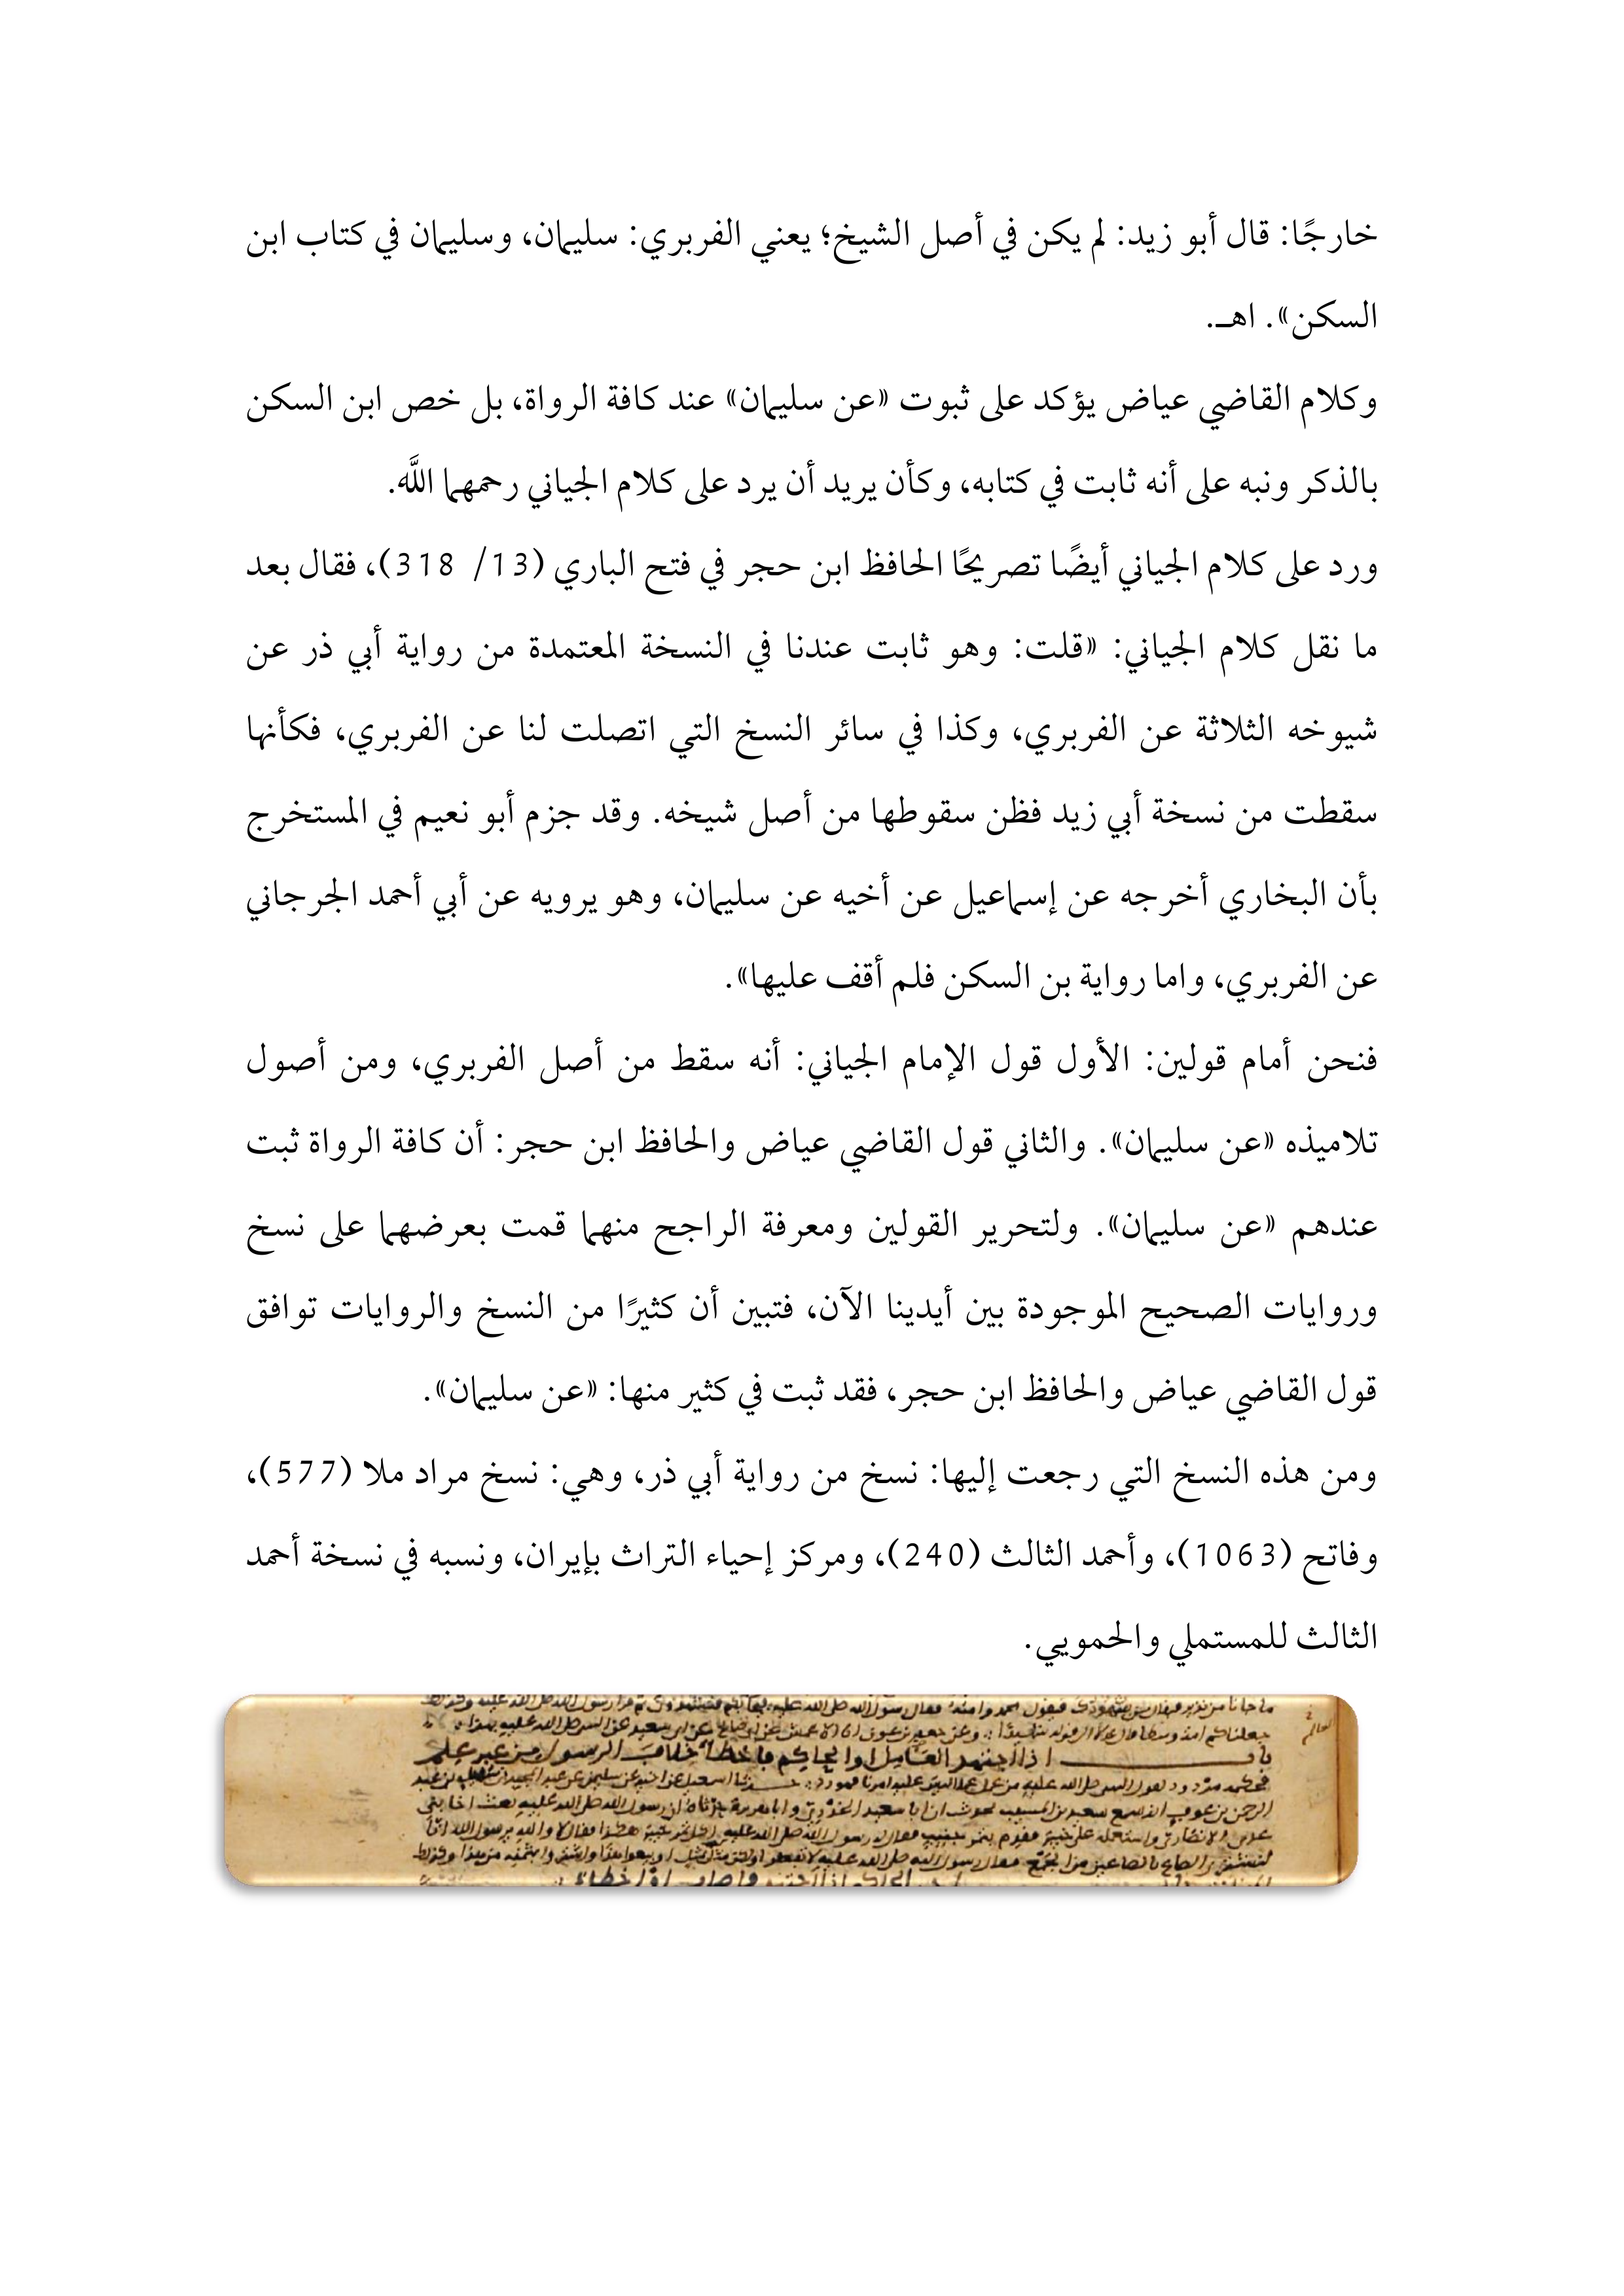 خارجًا: قال أبو زيد: لم يكن في أصل الشيخ؛ يعني الفربري: سليمان، وسليمان في كتاب ابن
السكن». اهـ.
وكلام القاضي عياض يؤكد على ثبوت «عن سليمان» عند كافة الرواة، بل خص ابن السكن
بالذكر ونبه على أنه ثابت في كتابه، وكأن يريد أن يرد على كلام الجياني رحمهما اللَّه.
ورد على كلام الجياني أيضًا تصريحًا الحافظ ابن حجر في فتح الباري (13/ 318)، فقال بعد
ما نقل كلام الجياني: «قلت: وهو ثابت عندنا في النسخة المعتمدة من رواية أبي ذر عن
شيوخه الثلاثة عن الفربري، وكذا في سائر النسخ التي اتصلت لنا عن الفربري، فكأنها
سقطت من نسخة أبي زيد فظن سقوطها من أصل شيخه. وقد جزم أبو نعيم في المستخرج
بأن البخاري أخرجه عن إسماعيل عن أخيه عن سليمان، وهو يرويه عن أبي أحمد الجرجاني
عن الفربري، واما رواية بن السكن فلم أقف عليها».
فنحن أمام قولين: الأول قول الإمام الجياني: أنه سقط من أصل الفربري، ومن أصول
تلاميذه «عن سليمان». والثاني قول القاضي عياض والحافظ ابن حجر: أن كافة الرواة ثبت
عندهم «عن سليمان». ولتحرير القولين ومعرفة الراجح منهما قمت بعرضهما على نسخ
وروايات الصحيح الموجودة بين أيدينا الآن، فتبين أن كثيرًا من النسخ والروايات توافق
قول القاضي عياض والحافظ ابن حجر، فقد ثبت في كثير منها: «عن سليمان».
ومن هذه النسخ التي رجعت إليها: نسخ من رواية أبي ذر، وهي: نسخ مراد ملا (577)،
وفاتح (1063)، وأحمد الثالث (240)، ومركز إحياء التراث بإيران، ونسبه في نسخة أحمد
الثالث للمستملي والحمويي.
باب اذا اجتهد العامل او الحاكم فاخطأ خلاف الرسول من غير علم